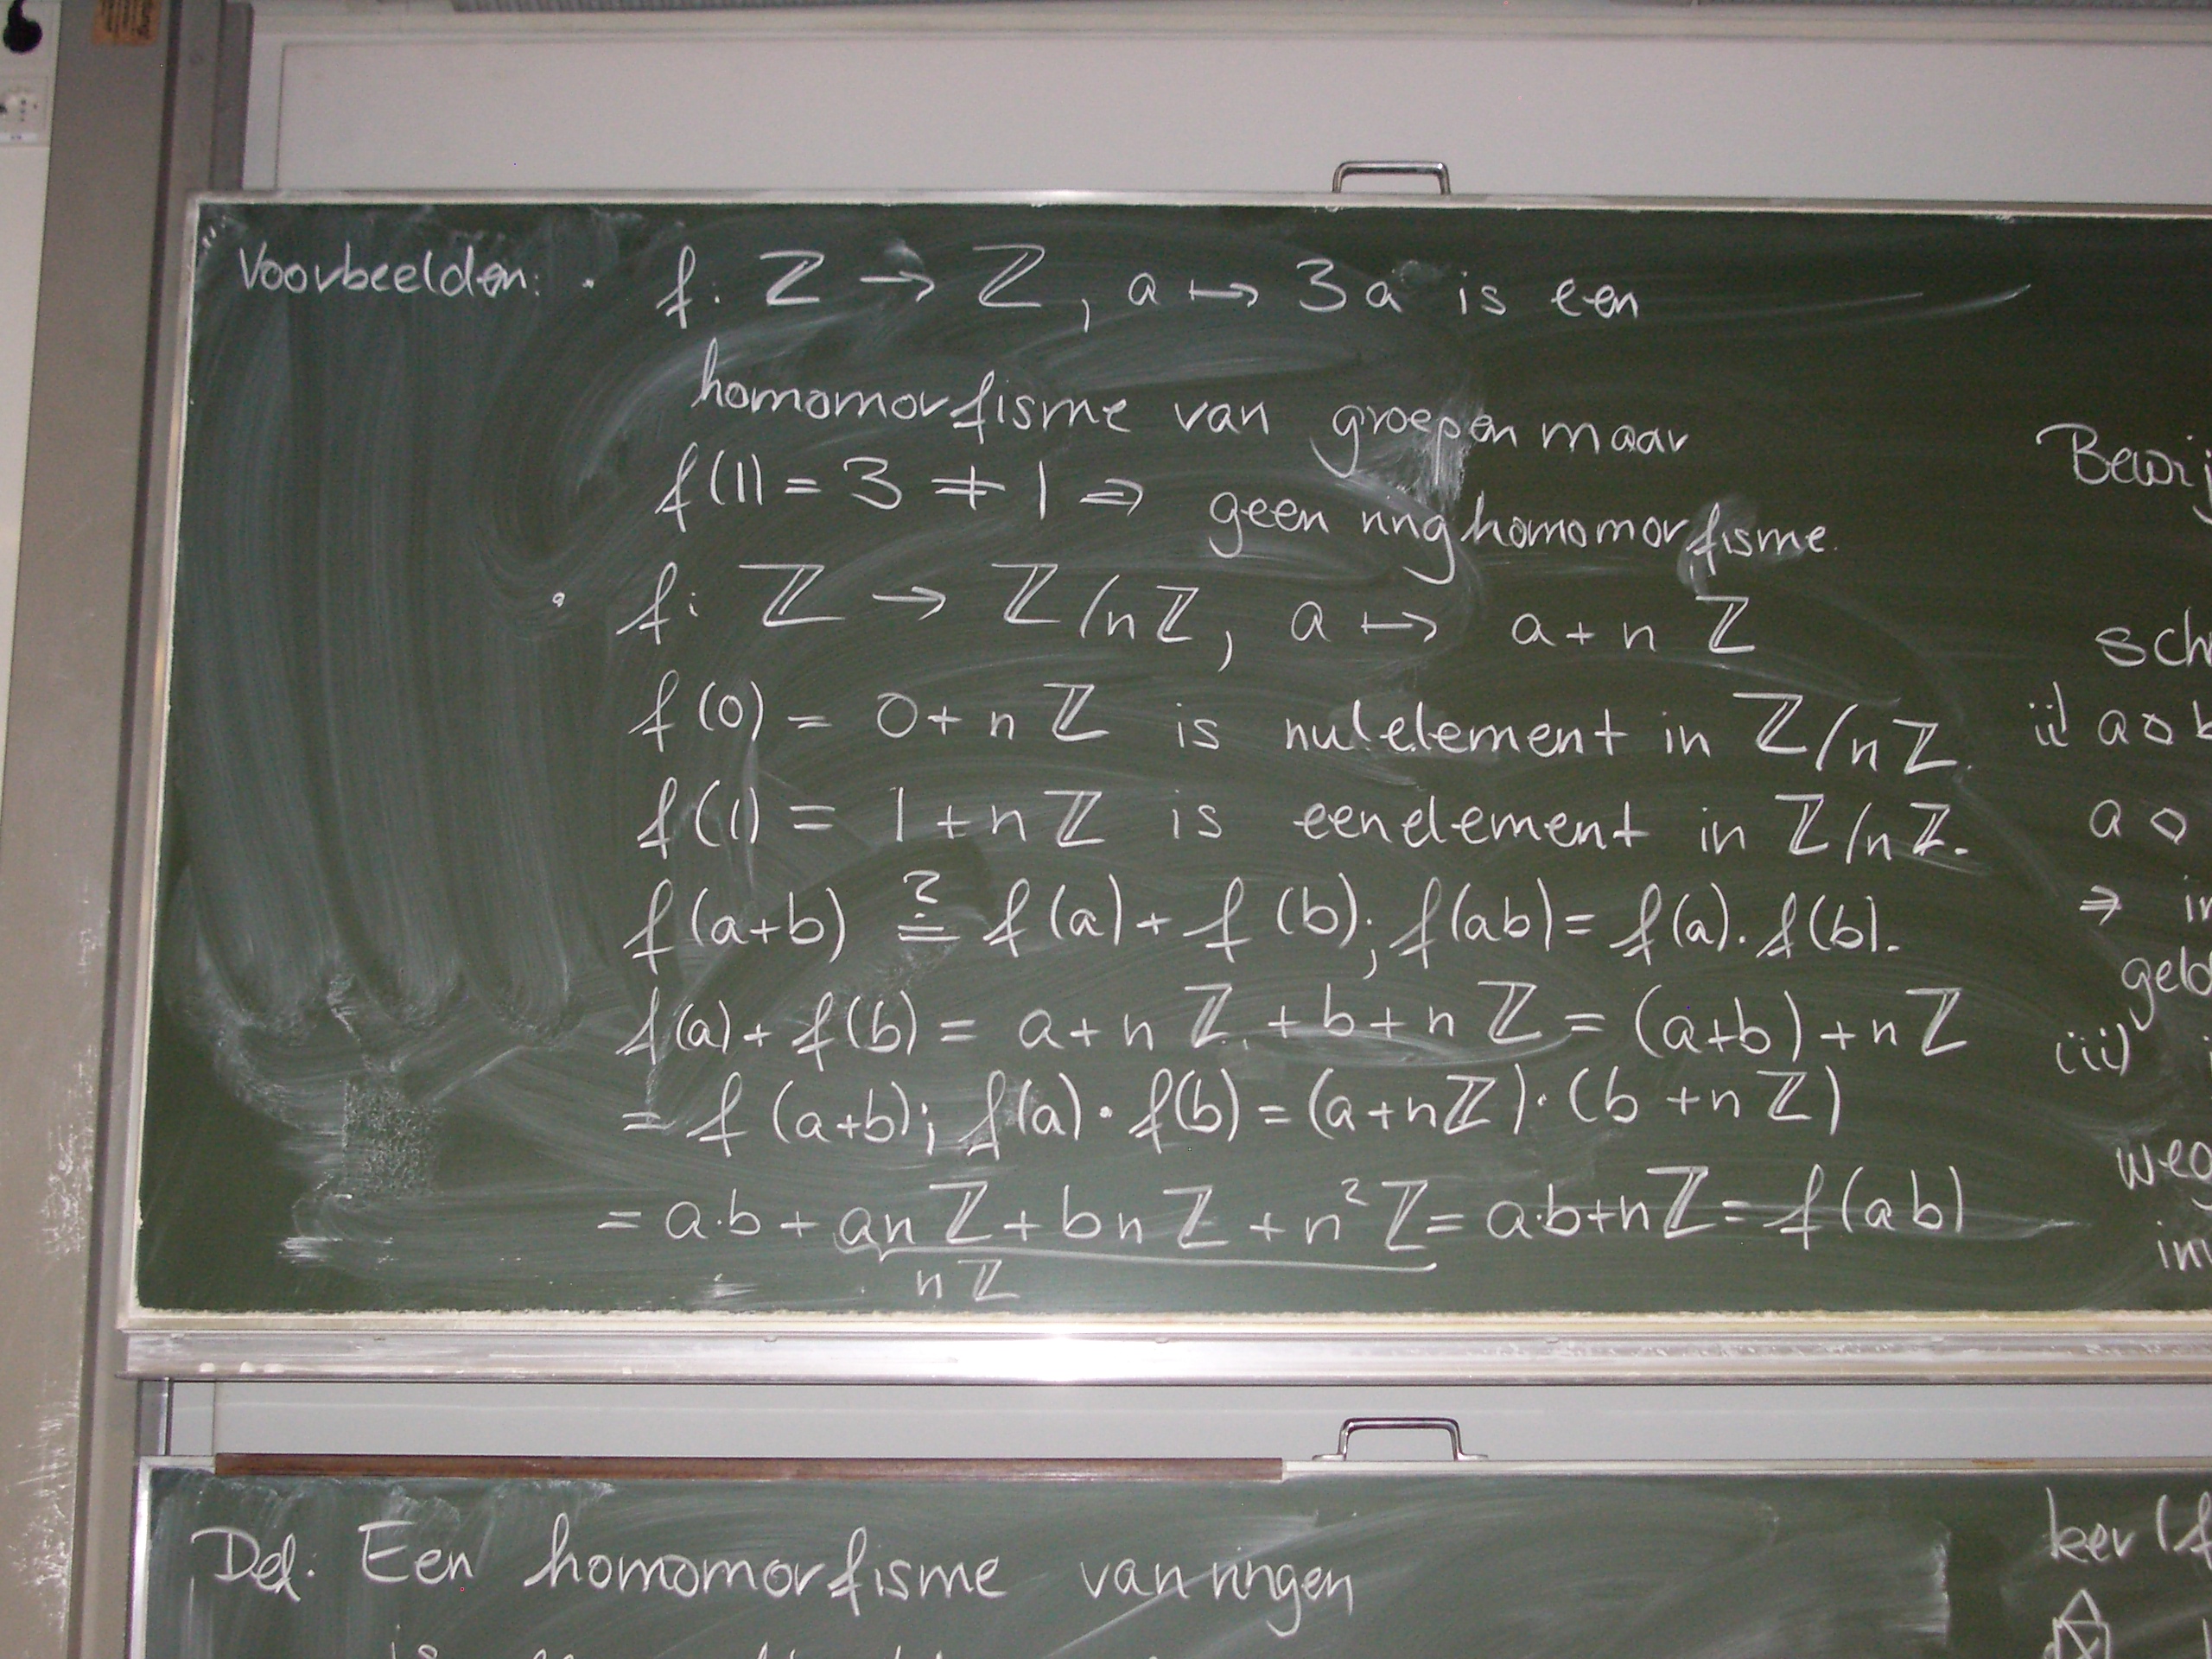 Voorbeelden: · f: ℤ → ℤ, a ↦ 3a is een
homomorfisme van groepen maar
f(1) = 3 ≠ 1 ⇒ geen ringhomomorfisme.
· f: ℤ → ℤ/nℤ, a ↦ a + nℤ
f(0) = 0 + nℤ is nulelement in ℤ/nℤ.
f(1) = 1 + nℤ is eenelement in ℤ/nℤ.
f(a+b) ≟ f(a) + f(b); f(ab) = f(a)·f(b).
f(a) + f(b) = a + nℤ + b + nℤ = (a+b) + nℤ
= f(a+b); f(a)·f(b) = (a+nℤ)·(b+nℤ)
= a·b + anℤ + bnℤ + n²ℤ = a·b+nℤ = f(ab)
nℤ
Bewij
sch
ii) a◇b
a ◇
⇒ in
geld
iii)
weg
inv
Def: Een homomorfisme van ringen
ker(f